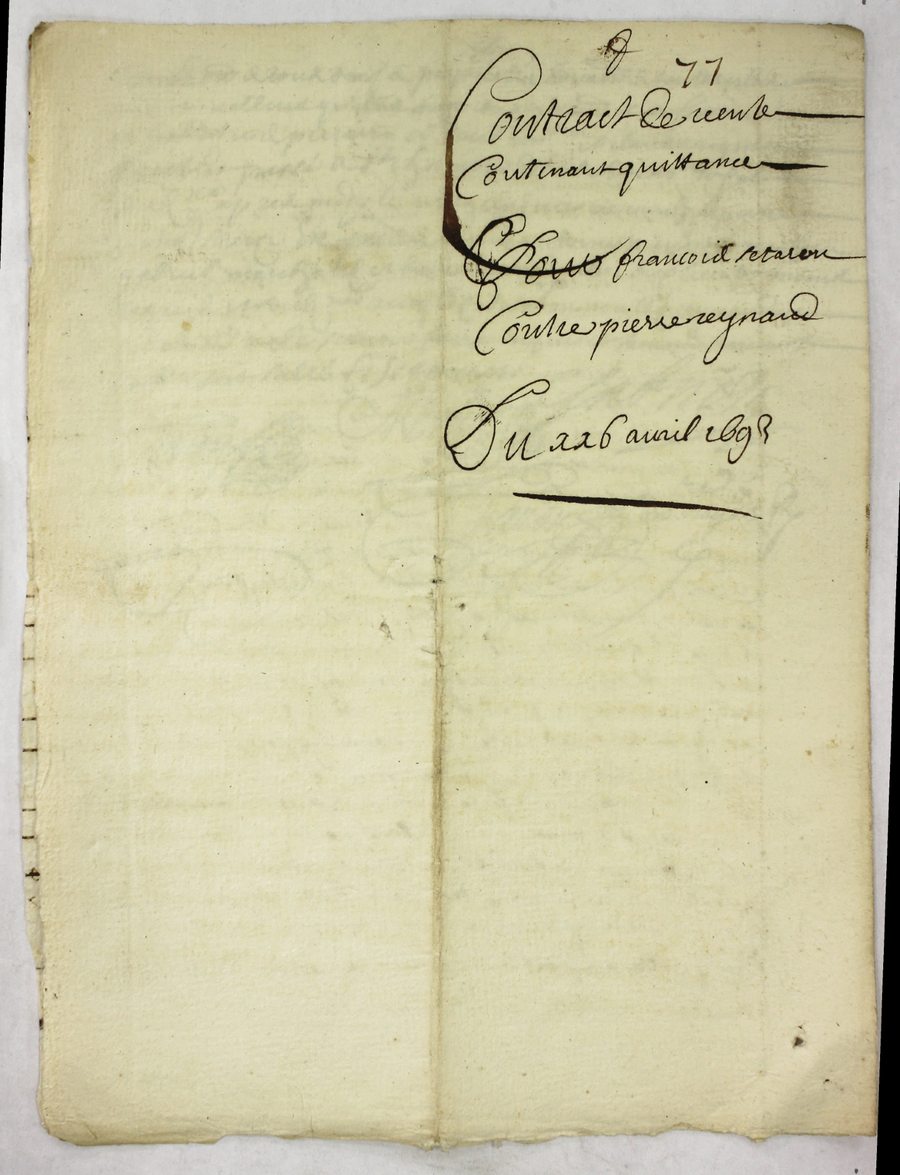 77
Contract de vente
Contenant quittance
Pour francois
Contre pierre reynaud
Du xx6 avril 1693